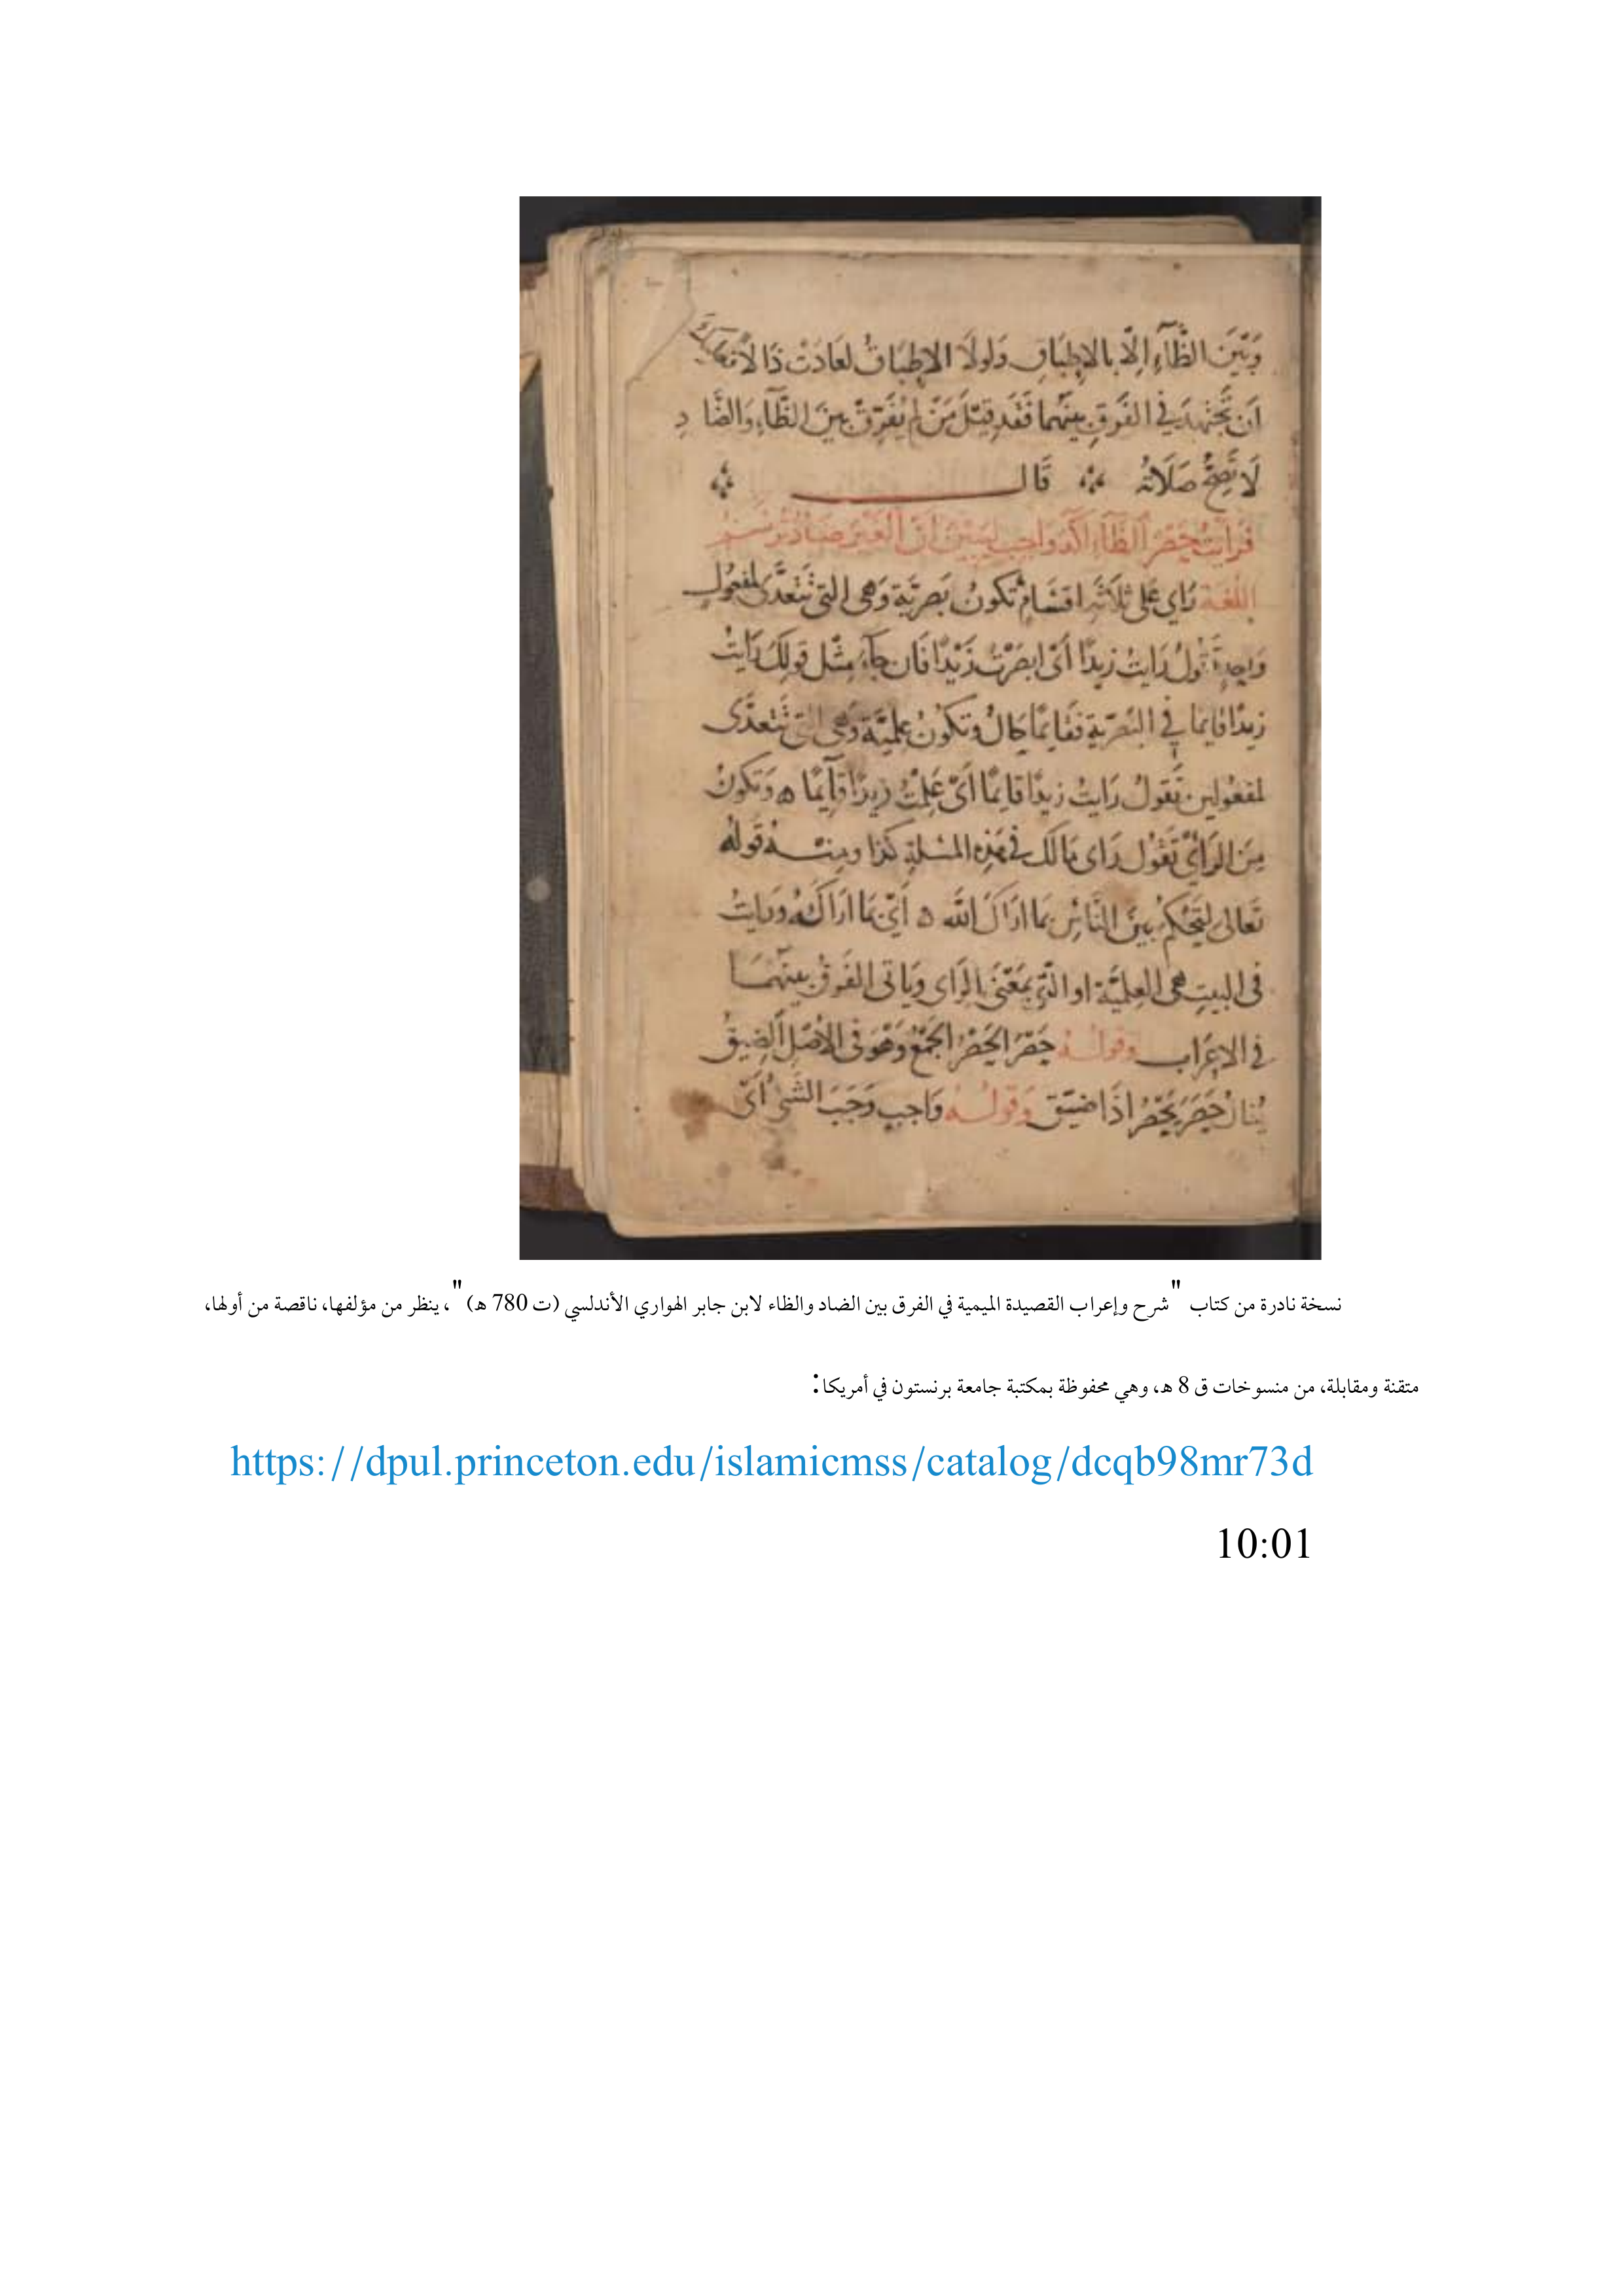 وَبَيْنَ الظَّآءِ اِلَّا بالاِطبَاقِ وَلولَا الاِطبَاقُ لعَادَتْ ذَالًا
اَن تَجْتَهِدَ في الفَرقِ بينَهما فَقَد قِيْلَ مَن لم يُفَرِّقْ بينَ الظَّآءِ وَالضَّادِ
لَا تَصِحُّ صَلَاتُه قَال
فَرَأيتُ حَصْرَ الظَّاءِ آكَدَ وَاجِبٍ ليَبِيْنَ اَنَّ الغَيْرَ ضَادٌ
اللغَة رَاي عَلى ثلَاثَة اقسَامٍ تكونُ بَصَريَّة وَهى التى تتَعَدَّى لمفعولٍ
وَاحِدٍ تقُولُ رَايتُ زيدًا اَىْ ابصَرْتُ زَيْدًا فَان جَآءَ مِثْل قولِكَ رَايتُ
زيدًا قايمًا في البَصَريةِ فقَايمًا حَالٌ وتكُونُ عِلميَّة وَهى التى تتَعدَّى
لمفعُولين تقولُ رَايتُ زيدًا قايمًا اَىْ عَلِمْتُ زيدًا قَآيمًا ه وَتكونُ
مِنَ الرَايْ تقُول رَاى مَالك في هَذِه المسْلةِ كذا ومِنْه قَوله
تَعالى لِتَحْكُمَ بينَ النَّاسِ بمَا ارَاكَ الله ه اَيْ بمَا ارَاكَهُ وَرَايتُ
فى البيت هى العِلميَّة او التى بمَعْنَى الرَاى وَيَاتى الفَرقُ بينَهُمَا
في الاعرَاب وقولُه حَصْرَ الحَصْرُ الجَمْعُ وَهوَ فى الأصْلِ الضيقُ
يُقالُ حَصَرَ يَحْصُرُ اذَا ضيَّقَ وَقولُه وَاجبٍ وَجَبَ الشَىْ اَىْ
نسخة نادرة من كتاب "شرح وإعراب القصيدة الميمية في الفرق بين الضاد والظاء لابن جابر الهواري الأندلسي (ت 780 هـ)"، ينظر من مؤلفها، ناقصة من أولها،
متقنة ومقابلة، من منسوخات ق 8 هـ، وهي محفوظة بمكتبة جامعة برنستون في أمريكا:
https://dpul.princeton.edu/islamicmss/catalog/dcqb98mr73d
10:01